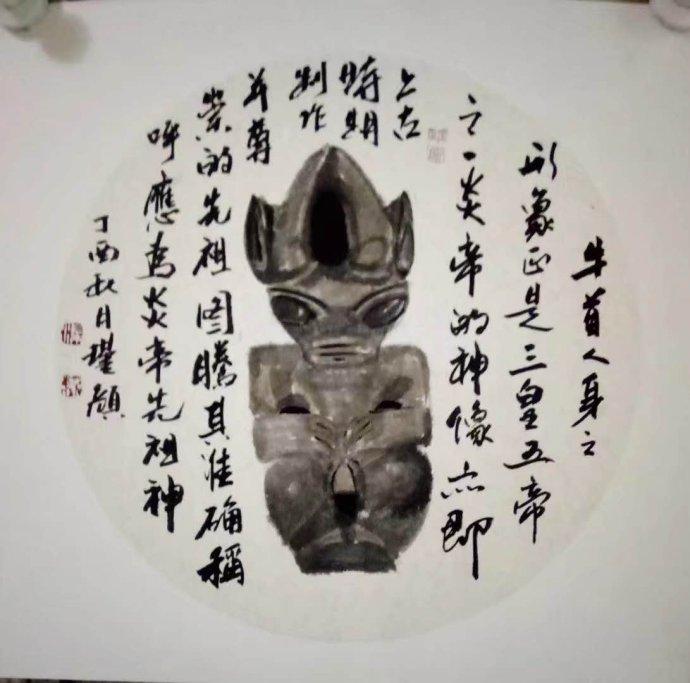 牛首人身之
形象正是三皇五帝
之一炎帝的神像亦即
上古
时期
制作
并尊
崇的先祖图腾其准确称
呼应为炎帝先祖神
丁酉秋月瑾颜